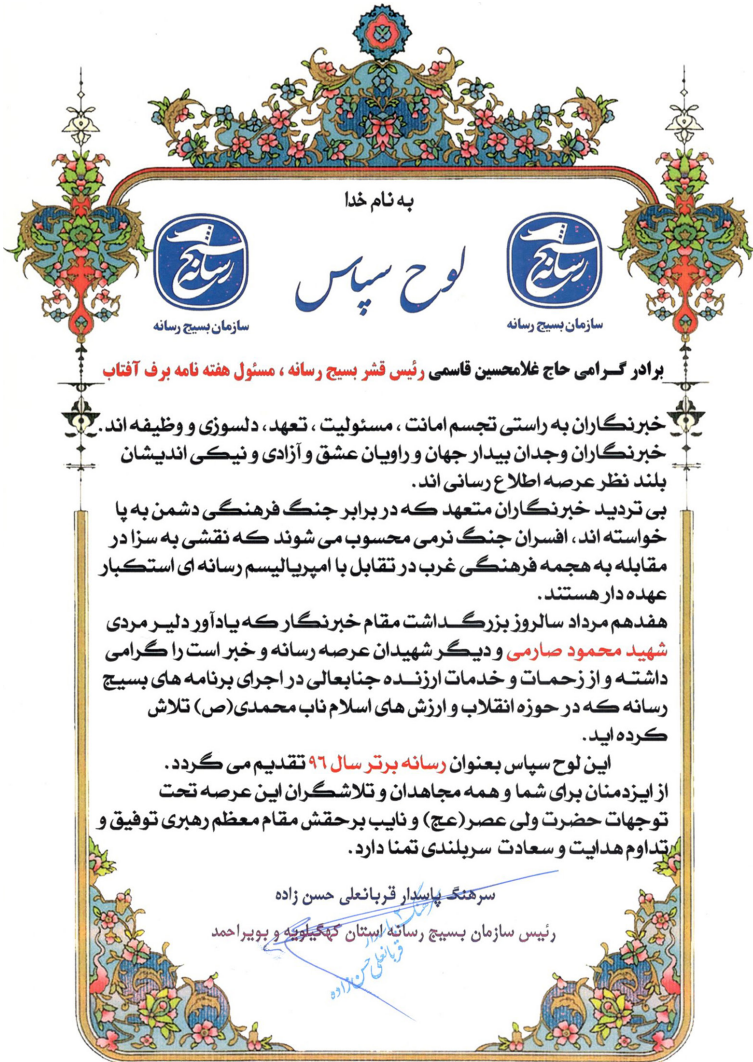 به نام خدا
لوح سپاس
بسیج رسانه
بسیج رسانه
سازمان بسیج رسانه
سازمان بسیج رسانه
برادر گـرامی حاج غلامحسین قاسمی رئیس قشر بسیج رسانه ، مسئول هفته نامه برف آفتاب
خبرنگاران به راستی تجسم امانت ، مسئولیت ، تعهد، دلسوزی و وظیفه اند.
خبرنگاران وجدان بیدار جهان و راویان عشق و آزادی و نیکی اندیشان
بلند نظر عرصه اطلاع رسانی اند.
بی تردید خبرنگاران متعهد که در برابر جنگ فرهنگی دشمن به پا
خواسته اند، افسران جنگ نرمی محسوب می شوند که نقشی به سزا در
مقابله به هجمه فرهنگی غرب در تقابل با امپریالیسم رسانه ای استکبار
عهده دار هستند.
هفدهم مرداد سالروز بزرگـداشت مقام خبرنگار که یادآور دلیـر مردی
شهید محمود صارمی و دیگر شهیدان عرصه رسانه و خبر است را گرامی
داشته و از زحمـات و خدمات ارزنـده جنابعالی در اجرای برنامه های بسیج
رسانه که در حوزه انقلاب و ارزش های اسلام ناب محمدی(ص) تلاش
کرده اید.
این لوح سپاس بعنوان رسانه برتر سال ۹۶ تقدیم می گردد.
از ایزدمنان برای شما و همه مجاهدان و تلاشگران این عرصه تحت
توجهات حضرت ولی عصر(عج) و نایب برحقش مقام معظم رهبری توفیق و
تداوم هدایت و سعادت سربلندی تمنا دارد.
سرهنگ پاسدار قربانعلی حسن زاده
رئیس سازمان بسیج رسانه استان کهگیلویه و بویراحمد
سرهنگ ۲ پاسدار
قربانعلی حسن زاده